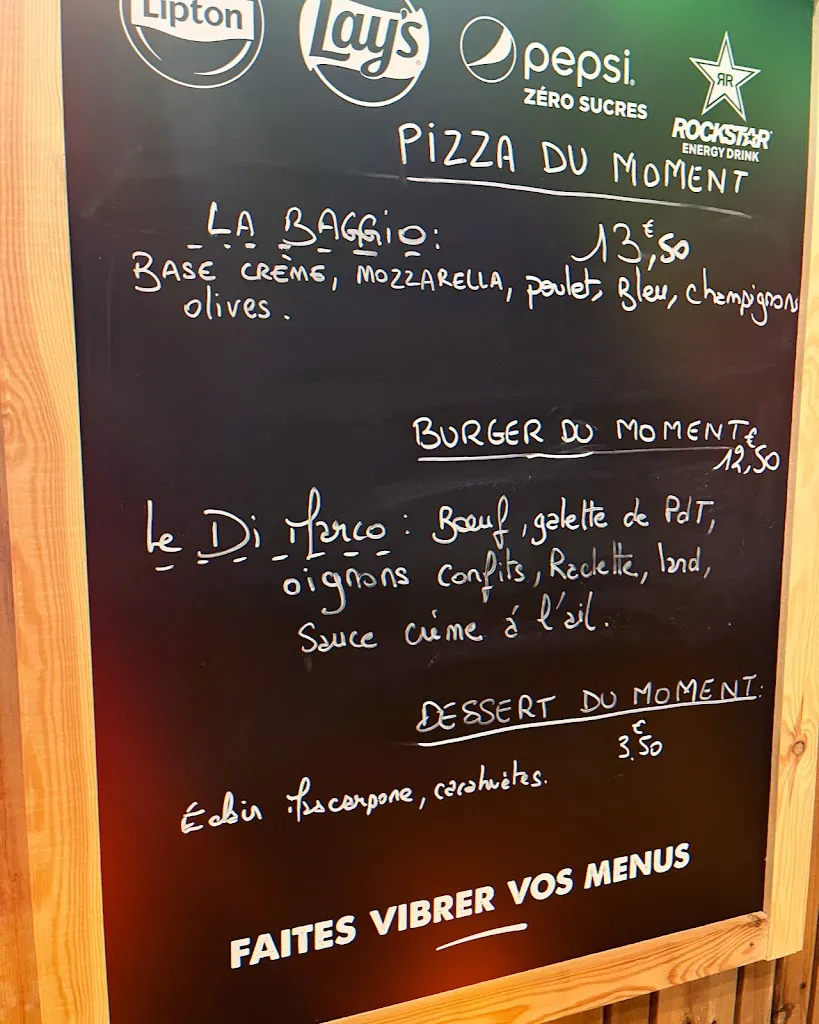 Lipton
Lay's
pepsi.
ZÉRO SUCRES
ROCKSTAR
ENERGY DRINK
PIZZA DU MOMENT
LA BAGGIO: 13,€50
BASE CRÈME, MOZZARELLA, poulet, Bleu, champignons
olives.
BURGER DU MOMENT
12,€50
Le Di Marco : Bœuf, galette de PdT,
oignons confits, Raclette, lard,
Sauce crème à l'ail.
DESSERT DU MOMENT:
3.€50
Éclair Mascarpone, cacahuètes.
FAITES VIBRER VOS MENUS